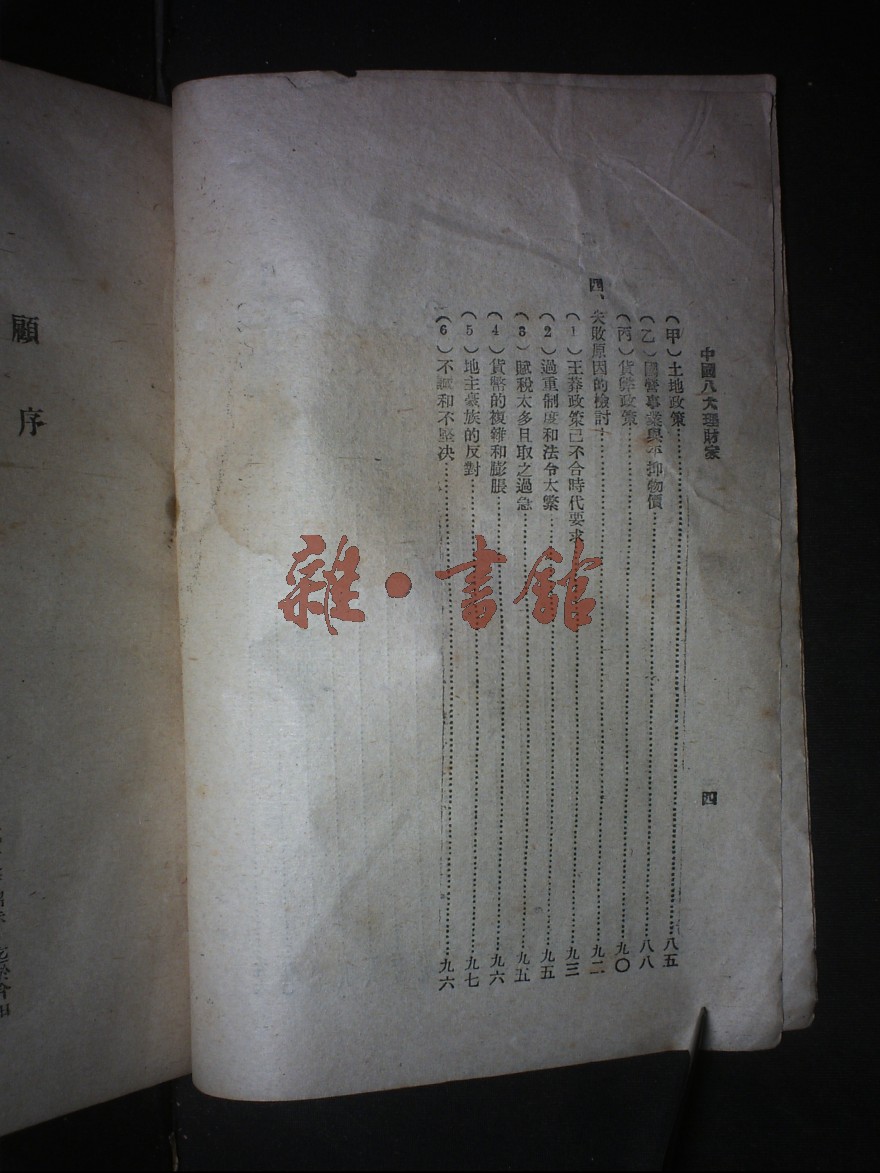 中國八大理財家
四
(甲)土地政策……八五
(乙)國營事業與平抑物價……八八
(丙)貨幣政策……九〇
四、失敗原因的檢討……九二
(1)王莽政策已不合時代要求……九三
(2)過重制度和法令太繁……九五
(3)賦稅太多且取之過急……九五
(4)貨幣的複雜和膨脹……九六
(5)地主豪族的反對……九七
(6)不調和不堅決……九六
顧序
雜·書館